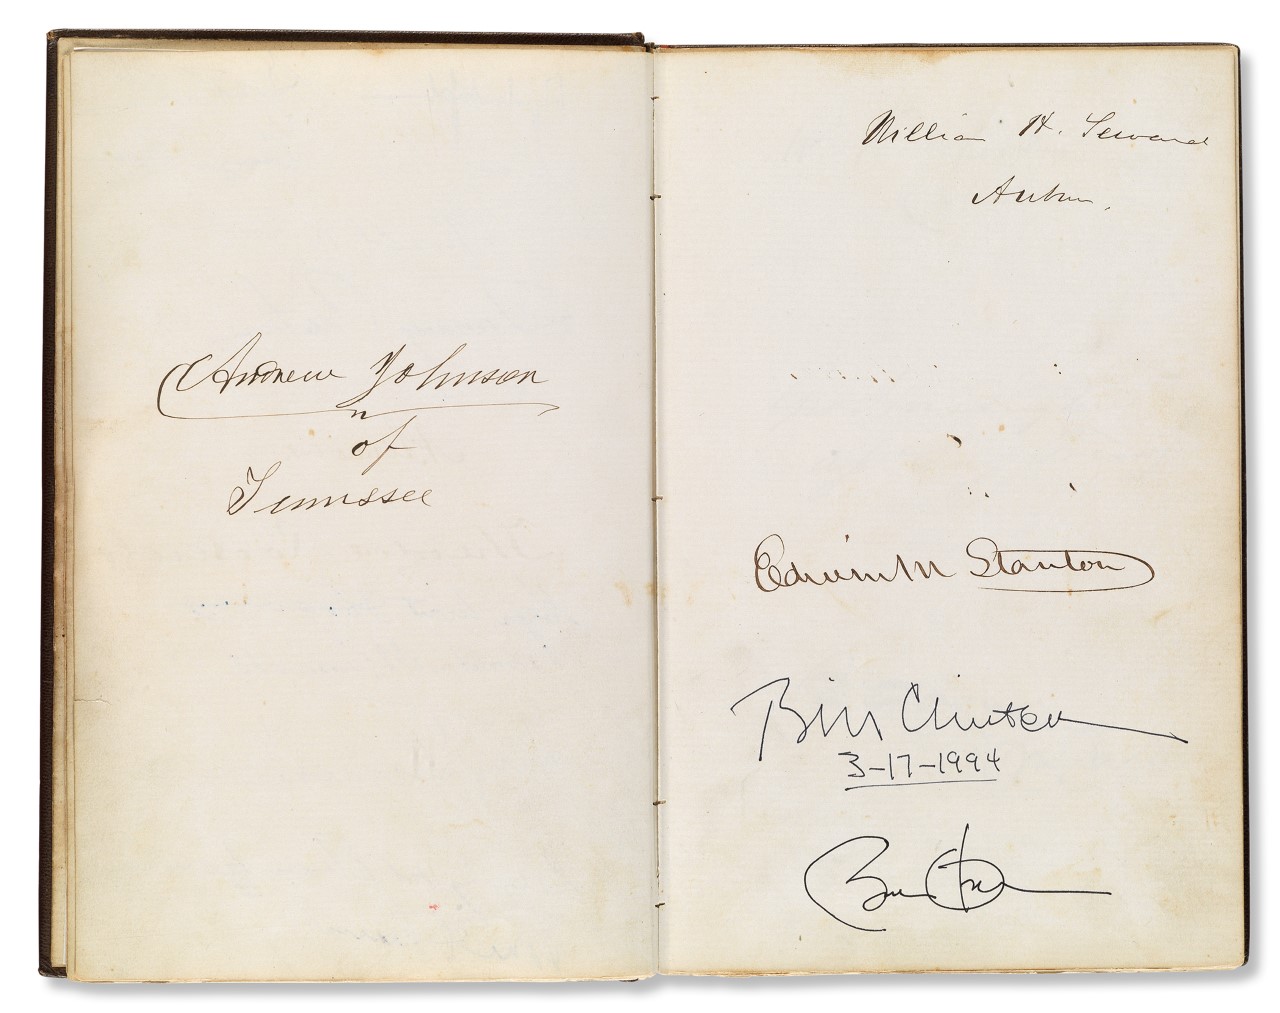 Andrew Johnson
of
Tennessee
William H. Seward
Auburn.
Edwin M Stanton
Bill Clinton
3-17-1994